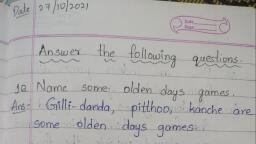 Date 27/10/2021
Date
Page
Answer the following questions.
1Q Name some olden days games.
Ans: Gilli-danda, pitthoo, kanche are
some olden days games.